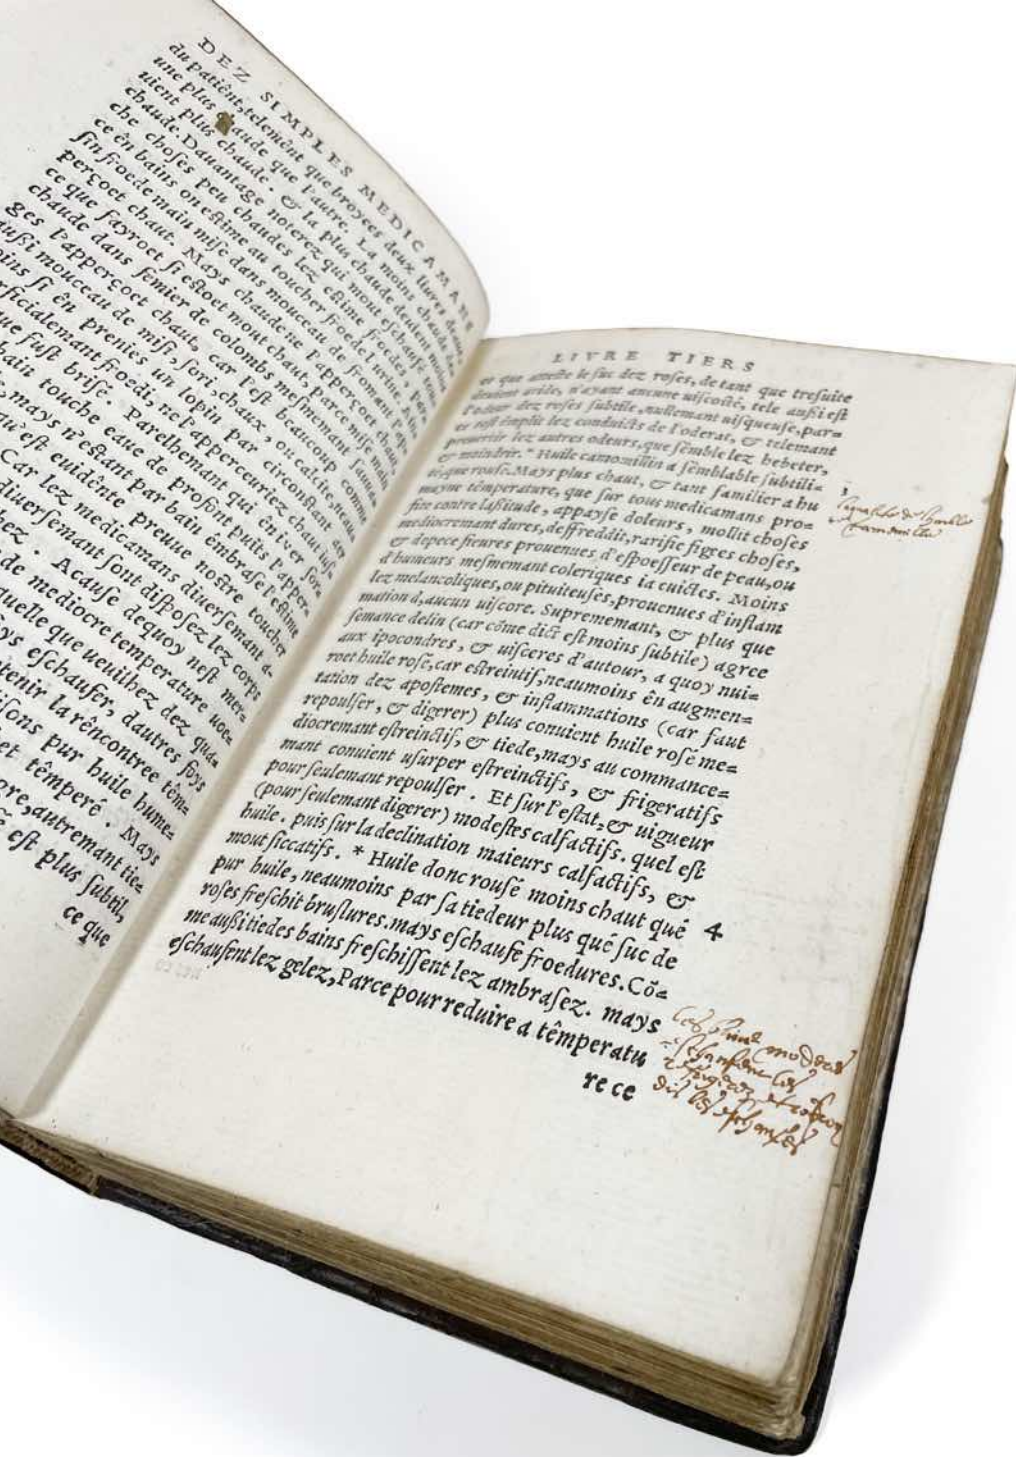 DEZ SIMPLES MEDICAMANS
du patiênt, telemênt que broyes deux liures
une plus chaude que l'autre. La moins chaude
uient plus chaude. & la plus chaude deuient
chaude. Dauantage noterez qui mout eschaufé touche
che choses peu chaudes lez estime froedes,
ce ên bains on estime au toucher froede l'urine.
sin froede main mise dans mouceau de fromant
perçoet chaut. Mays chaude ne l'apperçoet
ce que fayroet si estoet mout chaut, parce
chaude dans femier de colombs mesmemant
ges l'apperçoet chaut, car l'est beaucoup
aussi mouceau de misi, sori, chaux, ou calcite,
oins si ên prenies un lopin par circonstant
rficialemant froedi, ne l'apperceuriez chaut
que fust brisé. Parelhemant qui ên iver
bain touche eaue de profont puits l'apper
, mays n'estant par bain êmbrasé l'estime
qu'est euidênte preuue nostre toucher
Car lez medicamans diuersemant
diuersemant sont disposez lez corps
hez. Acause dequoy nest mer-
de mediocre temperature uoe-
quelle que ueuilhez dez qua-
ys eschaufer, dautres foys
tenir la rêncontree têm-
isons pur huile hume-
et têmperé. Mays
gre, autremant tie-
est plus subtil,
ce que
LIVRE TIERS
ce que atteste le suc dez roses, de tant que tresuite
deuient aride, n'ayant aucune uiscosité, tele aussi est
l'odeur dez roses subtile, nullemant uisqueuse, par-
ce rost êmplit lez conduicts de l'oderat, & telemant
peruertir lez autres odeurs, que sêmble lez hebeter,
& moindrir. * Huile camomillin a sêmblable subtili-
té, que rousé. Mays plus chaut, & tant familier a hu
mayne têmperature, que sur tous medicamans pro-
fite contre lassitude, appayse doleurs, mollit choses
mediocremant dures, deffreddit, rarifie figees choses,
& depece fieures prouenues d'espoesseur de peau, ou
d'humeurs mesmemant coleriques ia cuictes. Moins
lez melancoliques, ou pituiteuses, prouenues d'inflam
mation d'aucun uiscore. Supremement, & plus que
semance de lin (car côme dict est moins subtile) agree
aux ipocondres, & uisceres d'autour, a quoy nui-
roet huile rosé, car estreintif, neaumoins ên augmen-
tation dez apostemes, & inflammations (car faut
repoulser, & digerer) plus conuient huile rosé me-
diocremant estreinctif, & tiede, mays au commance-
mant conuient usurper estreinctifs, & frigeratifs
pour seulemant repoulser. Et sur l'estat, & uigueur
(pour seulemant digerer) modestes calfactifs. quel est
huile. puis sur la declination maieurs calfactifs, &
mout siccatifs. * Huile donc rousé moins chaut qué 4
pur huile, neaumoins par sa tiedeur plus qué suc de
roses freschit bruslures. mays eschaufe froedures. Cô-
me aussi tiedes bains freschissent lez ambrasez. mays
eschaufent lez gelez, Parce pour reduire a têmperatu
re ce